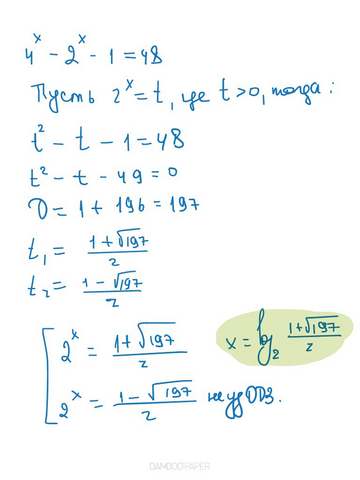 4^x - 2^x - 1 = 48
Пусть 2^x = t, где t > 0, тогда:
t² - t - 1 = 48
t² - t - 49 = 0
D = 1 + 196 = 197
t₁ = (1 + √197)/2
t₂ = (1 - √197)/2
[ 2^x = (1 + √197)/2
x = log₂ (1 + √197)/2
2^x = (1 - √197)/2 не уд ОДЗ.
BAMBOO PAPER